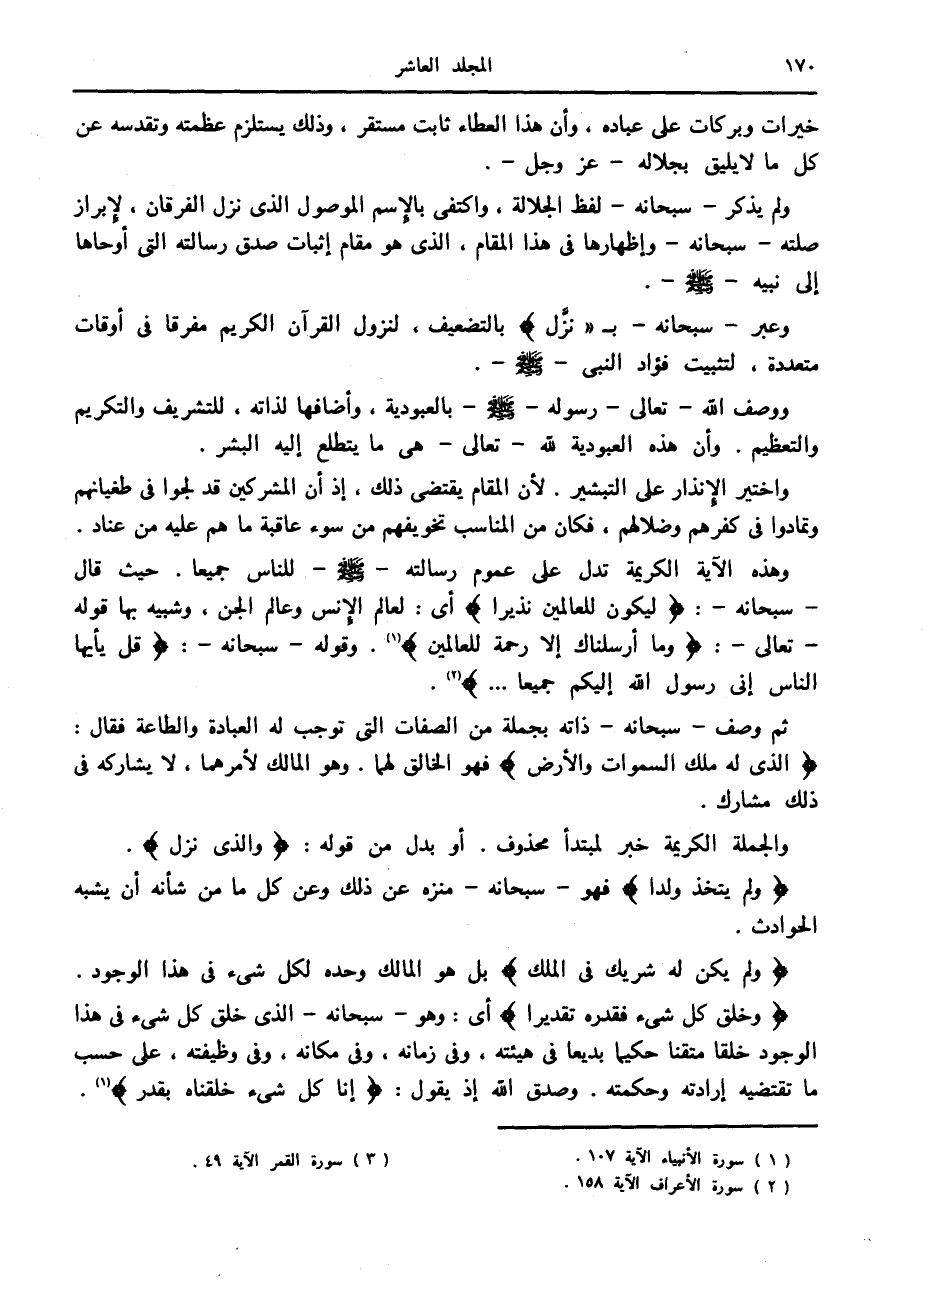 ١٧٠ المجلد العاشر
خيرات وبركات على عباده ، وأن هذا العطاء ثابت مستقر ، وذلك يستلزم عظمته وتقدسه عن
كل ما لايليق بجلاله – عز وجل – .
ولم يذكر – سبحانه – لفظ الجلالة ، واكتفى بالإسم الموصول الذى نزل الفرقان ، لإبراز
صلته – سبحانه – وإظهارها فى هذا المقام ، الذى هو مقام إثبات صدق رسالته التى أوحاها
إلى نبيه – ﷺ – .
وعبر – سبحانه – بـ « نزَّل ﴾ بالتضعيف ، لنزول القرآن الكريم مفرقا فى أوقات
متعددة ، لتثبيت فؤاد النبى – ﷺ – .
ووصف الله – تعالى – رسوله – ﷺ – بالعبودية ، وأضافها لذاته ، للتشريف والتكريم
والتعظيم . وأن هذه العبودية لله – تعالى – هى ما يتطلع إليه البشر .
واختير الإنذار على التبشير . لأن المقام يقتضى ذلك ، إذ أن المشركين قد لجوا فى طغيانهم
وتمادوا فى كفرهم وضلالهم ، فكان من المناسب تخويفهم من سوء عاقبة ما هم عليه من عناد .
وهذه الآية الكريمة تدل على عموم رسالته – ﷺ – للناس جميعا . حيث قال
– سبحانه – : ﴿ ليكون للعالمين نذيرا ﴾ أى : لعالم الإنس وعالم الجن ، وشبيه بها قوله
– تعالى – : ﴿ وما أرسلناك إلا رحمة للعالمين ﴾(١) . وقوله – سبحانه – : ﴿ قل يأيها
الناس إنى رسول الله إليكم جميعا ... ﴾(٢) .
ثم وصف – سبحانه – ذاته بجملة من الصفات التى توجب له العبادة والطاعة فقال :
﴿ الذى له ملك السموات والأرض ﴾ فهو الخالق لهما . وهو المالك لأمرهما ، لا يشاركه فى
ذلك مشارك .
والجملة الكريمة خبر لمبتدأ محذوف . أو بدل من قوله : ﴿ والذى نزل ﴾ .
﴿ ولم يتخذ ولدا ﴾ فهو – سبحانه – منزه عن ذلك وعن كل ما من شأنه أن يشبه
الحوادث .
﴿ ولم يكن له شريك فى الملك ﴾ بل هو المالك وحده لكل شىء فى هذا الوجود .
﴿ وخلق كل شىء فقدره تقديرا ﴾ أى : وهو – سبحانه – الذى خلق كل شىء فى هذا
الوجود خلقا متقنا حكيما بديعا فى هيئته ، وفى زمانه ، وفى مكانه ، وفى وظيفته ، على حسب
ما تقتضيه إرادته وحكمته . وصدق الله إذ يقول : ﴿ إنا كل شىء خلقناه بقدر ﴾(١) .
( ١ ) سورة الأنبياء الآية ١٠٧ .
( ٢ ) سورة الأعراف الآية ١٥٨ .
( ٣ ) سورة القمر الآية ٤٩ .